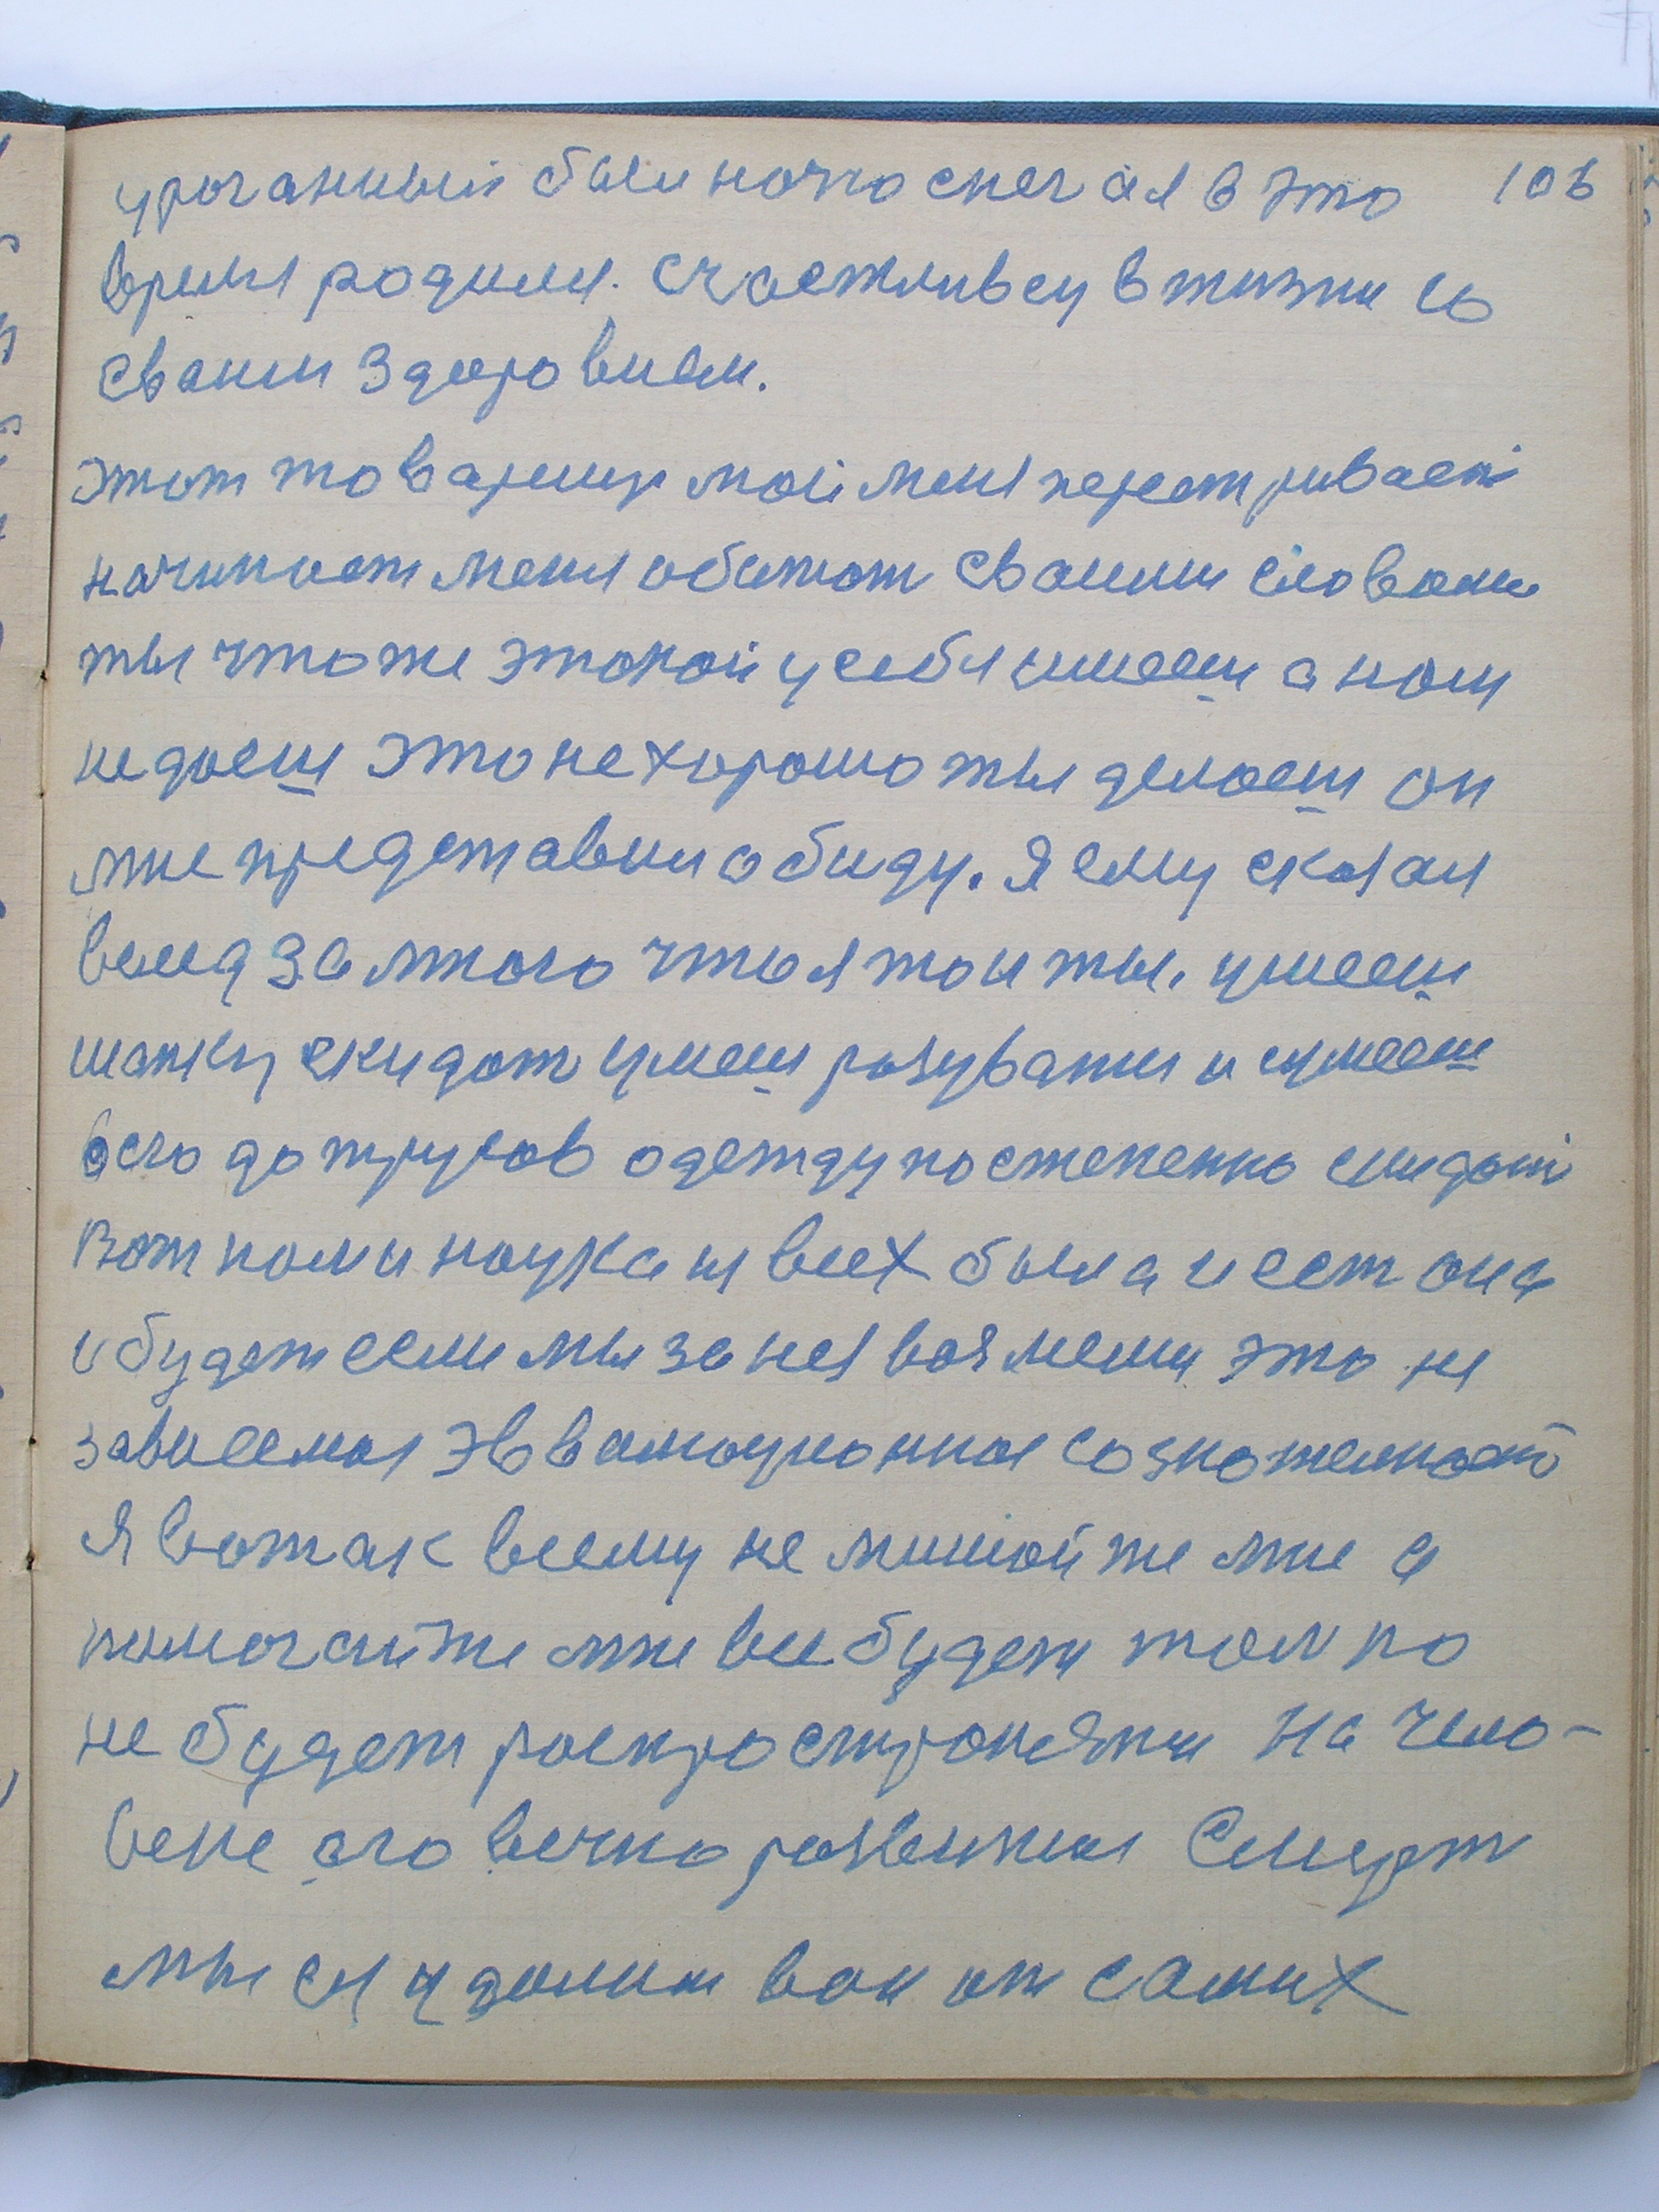 ураганный были ночю снег а я в это 106
время родился. счастливец в жизни со
сваим здоровием.
этот товарищ мой меня перестриваеть
начинает меня обижат сваими словами
ты что же такой у себя имееш а нам
не даеш это не хорошо ты делаеш он
мне представил обиду. Я ему сказал
вина за много что я то и ты. умееш
шапку скидат умееш разуватся и сумееш
всю до трусов одежду постепенно скидать
Вот нам и наука и всех была и ест она
и будет если мы за нея возмемся это не
зависемая эвалюционная возможност
Я вот так всему не мишайте мне а
помогайте мне все будет толко
не будет распространятся на чело-
веке его вечно развитая Смерт
мы ея удалим вон от самих